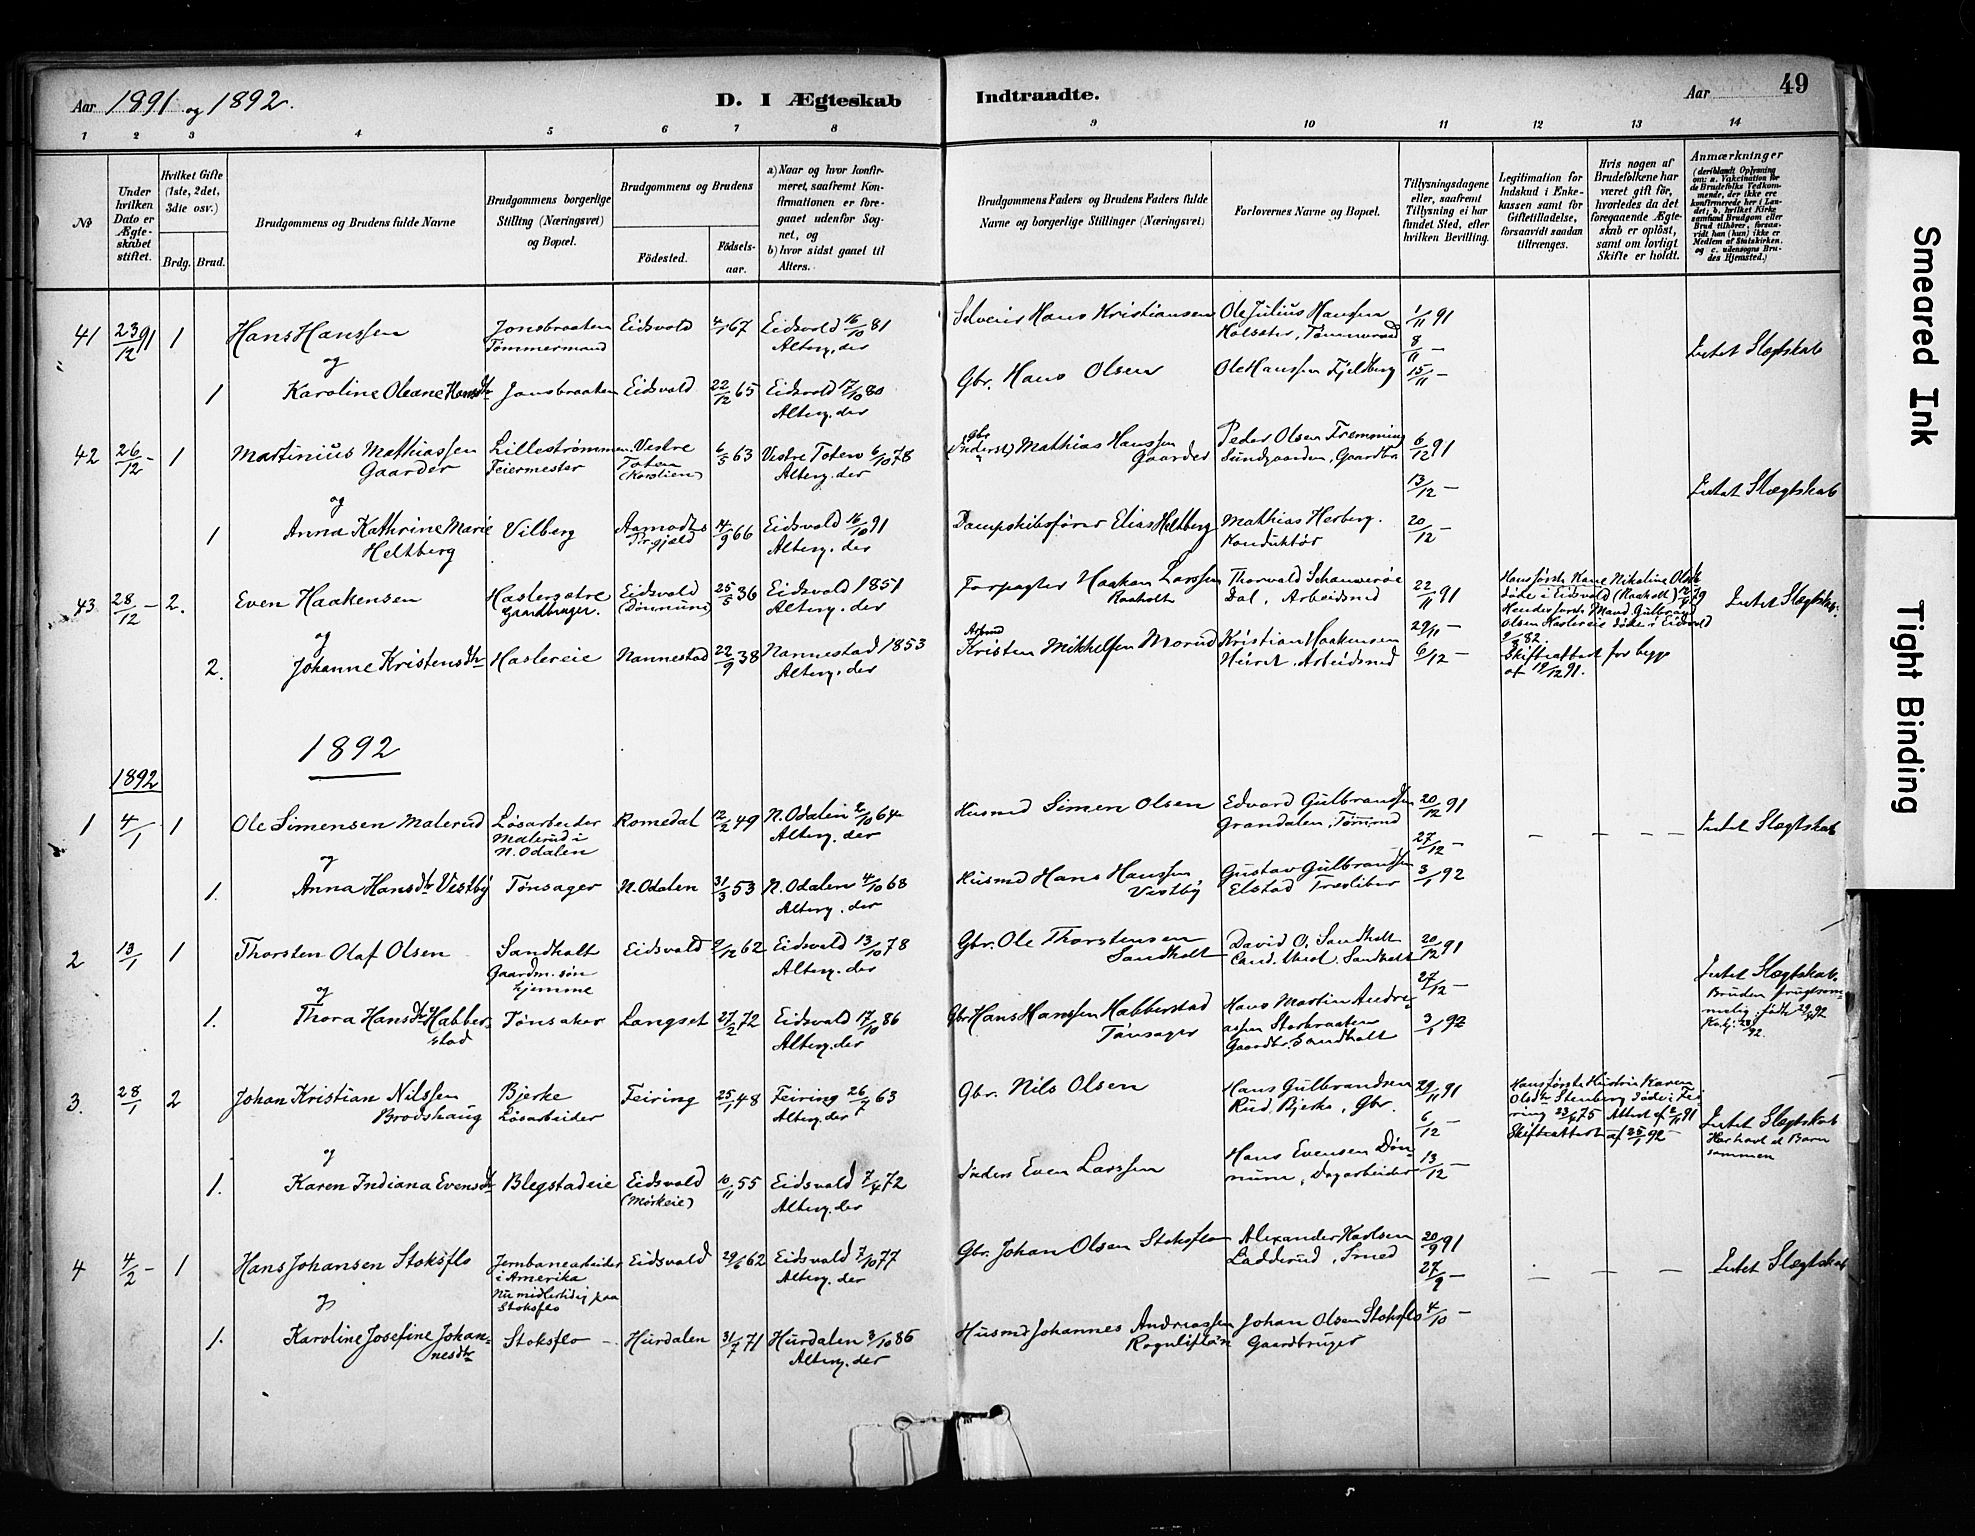 Aar 1891 og 1892.
D. I Ægteskab Indtraadte.
Aar
49
1 2 3 4 5 6 7 8 9 10 11 12 13 14
No
Under hvilken Dato er Ægteskabet stiftet.
Hvilket Gifte (1ste, 2det, 3die osv.)
Brdg. Brud.
Brudgommens og Brudens fulde Navne
Brudgommens borgerlige Stilling (Næringsvei) og Bopæl.
Brudgommens og Brudens
Födested.
Födselsaar.
a) Naar og hvor konfirmeret, saafremt Konfirmationen er foregaaet udenfor Sognet, og
b) hvor sidst gaaet til Alters.
Brudgommens Faders og Brudens Faders fulde Navne og borgerlige Stillinger (Næringsvei)
Forlovernes Navne og Bopæl.
Tillysningsdagene eller, saafremt Tillysning ei har fundet Sted, efter hvilken Bevilling.
Legitimation for Indskud i Enkekassen samt for Giftetilladelse, forsaavidt saadan tiltrænges.
Hvis nogen af Brudefolkene har været gift för, hvorledes da det foregaaende Ægteskab er oplöst, samt om lovligt Skifte er holdt.
Anmærkninger
(deriblandt Oplysning om: a. Vakcination for de Brudefolks Vedkommende, der ikke ere konfirmerede her i Landet; b. hvilket Kirkesamfund Brudgom eller Brud tilhörer, forsaavidt han (hun) ikke er Medlem af Statskirken, og c. udensogns Brudes Hjemsted.)
41 23/12 91 1 Hans Hanssen Jonsbraaten Eidsvold 4/1 67 Eidsvold 16/10 81 Selveier Hans Kristiansen Ole Julius Hansen 1/11 91
Tømmermand Alterg. der 8/11 – Intet Slægtskab
og
1 Karoline Oleane Hansdtr Jonsbraaten Eidsvold 22/12 65 Eidsvold 17/10 80 Gbr. Hans Olsen Ole Hanssen Fjeldberg 15/11 –
Alterg. der
42 26/12 – 1 Martinius Matthiassen Lillestrømmen Vestre 6/5 63 Vestre Toten 6/10 78 Mathias Hanssen Peder Olsen Fremming 6/12 91
Gaarder Feiermester Toten Alterg. der Gaarder Sundgaarden, Gaardbr.
13/12 – Intet Slægtskab
og
1 Anna Kathrine Marie Vilberg Aamodts 14/9 66 Eidsvold 16/10 91 Dampskibsfører Elias Heltberg Mathias Herberg. 20/12 –
Heltberg Prgjæld Alterg. der Konduktør
43 28/12 – 2. Even Haakensen Haslersætre Eidsvold 25/5 36 Eidsvold 1851 Forpagter Haakan Larssen Thorvald 22/11 91 Intet Slægtskab.
Gaardbruger. Alterg. der Raaholt Dal, Arbeidsmd
Hans første Kone Nikoline Olsdtr
døde i Eidsvold (Raaholt)
Hendes første Mand Gulbrand
Olsen Haslereie døde i Eidsvold
82.
Skifteattest for begge
af 19/12 91.
og
2. Johanne Kristensdtr Haslereie Nannestad 22/9 38 Nannestad 1853 Arbmd Kristen Mikkelsen Morud Kristian Haakensen 29/11 –
Alterg. der Arbeidsmd 6/12 –
1892
1892
1 4/1 1 Ole Simensen Malerud Løsarbeider Romedal 12/2 49 N. Odalen 2/10 64 Husmd Simen Olsen Edvard Gulbranssen 20/12 91
Malerud i Alterg. der Grandalen, Tømmd – – – – Intet Slægtskab
N. Odalen 27/12 –
og
1. Anna Hansdtr Vestby Tønsager N. Odalen 31/3 53 N. Odalen 4/10 68 Husmd Hans Hanssen, Gustav Gulbranssen 3/1 92
Alterg. der Vestby Elstad
2 13/1 1 Thorsten Olaf Olsen Sandholt Eidsvold 2/12 62 Eidsvold 13/10 78 Gbr. Ole Thorstensen David O. Sandholt 20/12 91
Gaardm. søn Alterg. der Sandholt Cand. theol. Sandholt
hjemme 27/12 – Intet Slægtskab.
og
1. Thora Hansdtr Habber- Tønsaker Langset 27/2 72 Eidsvold 17/10 86 Gbr. Hans Hanssen Habberstad Hans Martin Andre- 3/1 92
stad Alterg. der Tønsager assen Storbraaten
Gaardbr. Sandholt
Bruden frugtsom-
melig
3. 28/1 2 Johan Kristian Nilssen Bjerke Feiring 25/1 48 Feiring 26/7 63 Gbr. Nils Olsen Hans Gulbrandsen 29/11 91
Brodshaug Løsarbeider Alterg. der Rud, Bjerke, Gbr. 6/12 –
Hans første Hustru Karen
Olsdtr Stenberg døde i Fei-
ring 23/4 75 Attest af 2/11 91
Skifteattest af 25/1 92 –
Intet Slægtskab
Har havt et Barn
sammen
og
1. Karen Indiana Evensdtr Blegstadeie Eidsvold 10/11 55 Eidsvold 7/4 72 Inders. Even Larssen Hans Evensen Døn- 13/12 –
(Mørkeie) Alterg. der num, Dagarbeider
4 4/2 – 1 Hans Johansen Stoksflo Jernbanearbeider Eidsvold 29/6 62 Eidsvold 7/10 77 Gbr. Johan Olsen Stoksflo Alexander Karlsen 20/9 91
i Amerika Alterg. der Ladderud, Smed 27/9 – – – – Intet Slægtskab
Nu midlertidig paa
Stoksflo
og
1. Karoline Josefine Johan- Stoksflo – Hurdalen 31/7 71 Hurdalen 3/10 86 Husmd Johannes Andreassen Johan Olsen Stoksflo 4/10 –
nesdtr Alterg. der Gaardbruger
Smeared Ink
Tight Binding